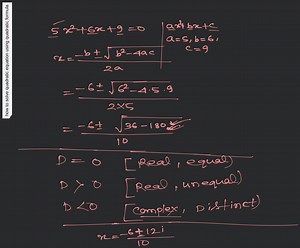 how to solve quadratic equation using quadratic formula
5x²+6x+9=0
ax²+bx+c
a=5, b=6,
c=9
x = (-b ± √(b²-4ac)) / 2a
= (-6 ± √(6²-4·5·9)) / 2×5
= (-6 ± √(36-180)) / 10
D = 0 [Real, equal]
D > 0 [Real, unequal]
D < 0 [Complex, Distinct]
x = (-6 ± 12i) / 10